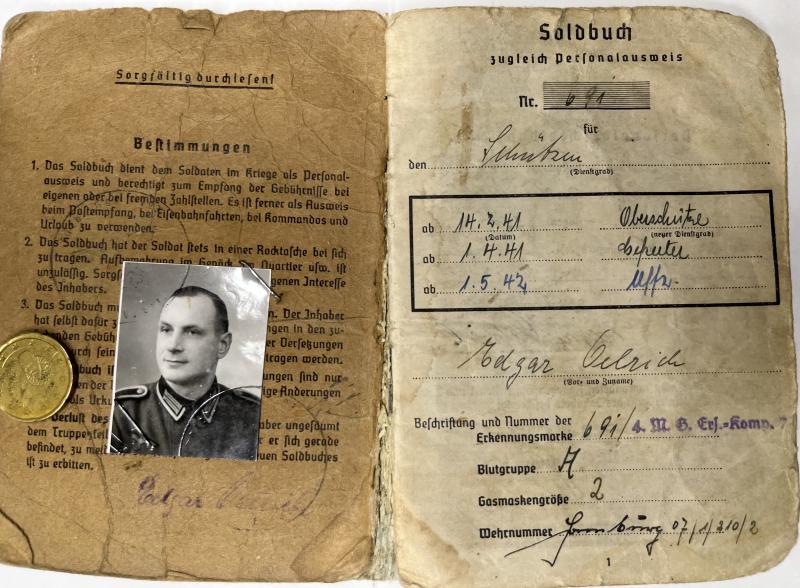 Sorgfältig durchlesen!
Bestimmungen
1. Das Soldbuch dient dem Soldaten im Kriege als Personal-
ausweis und berechtigt zum Empfang der Gebührnisse bei
eigenen oder bei fremden Zahlstellen. Es ist ferner als Ausweis
beim Postempfang, bei Eisenbahnfahrten, bei Kommandos und
Urlaub zu verwenden.
2. Das Soldbuch hat der Soldat stets in einer Rocktasche bei sich
zu tragen. Aufbewahrung im Gepäck, im Quartier usw. ist
unzulässig. Sorgf genen Interesse
des Inhabers.
3. Das Soldbuch m en. Der Inhaber
hat selbst dafür z ungen in den zu-
Gebüh er Versetzungen
durch sein tragen werden.
buch i ungen sind nur
Änderungen
als Urku
Verlust des aber ungesäumt
dem Truppenteil er sich gerade
befindet, zu me uen Soldbuches
ist zu erbitten.
Edgar
Soldbuch
zugleich Personalausweis
Nr. 691
für
den Schützen
(Dienstgrad)
ab 14.2.41 Oberschütze
(Datum) (neuer Dienstgrad)
ab 1.4.41 Gefreiter
ab 1.5.42 Uffz.
Edgar Oelrich
(Vor- und Zuname)
Beschriftung und Nummer der
Erkennungsmarke 691/ 4. M. G. Ers.-Komp.
Blutgruppe A
Gasmaskengröße 2
Wehrnummer Hamburg 07/1/210/2
1